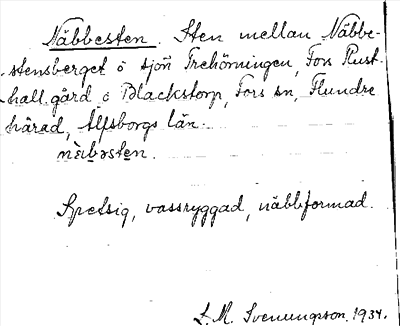 Näbbesten. Sten mellan Näbbe-
stensberget o sjön Trehörningen, Fors Rust-
hall gård o Blackstorp, Fors sn, Flundre
härad, Älfsborgs län.
nèibəsten.
Spetsig, vassryggad, näbbformad.
L. M. Svenungsson, 1934.